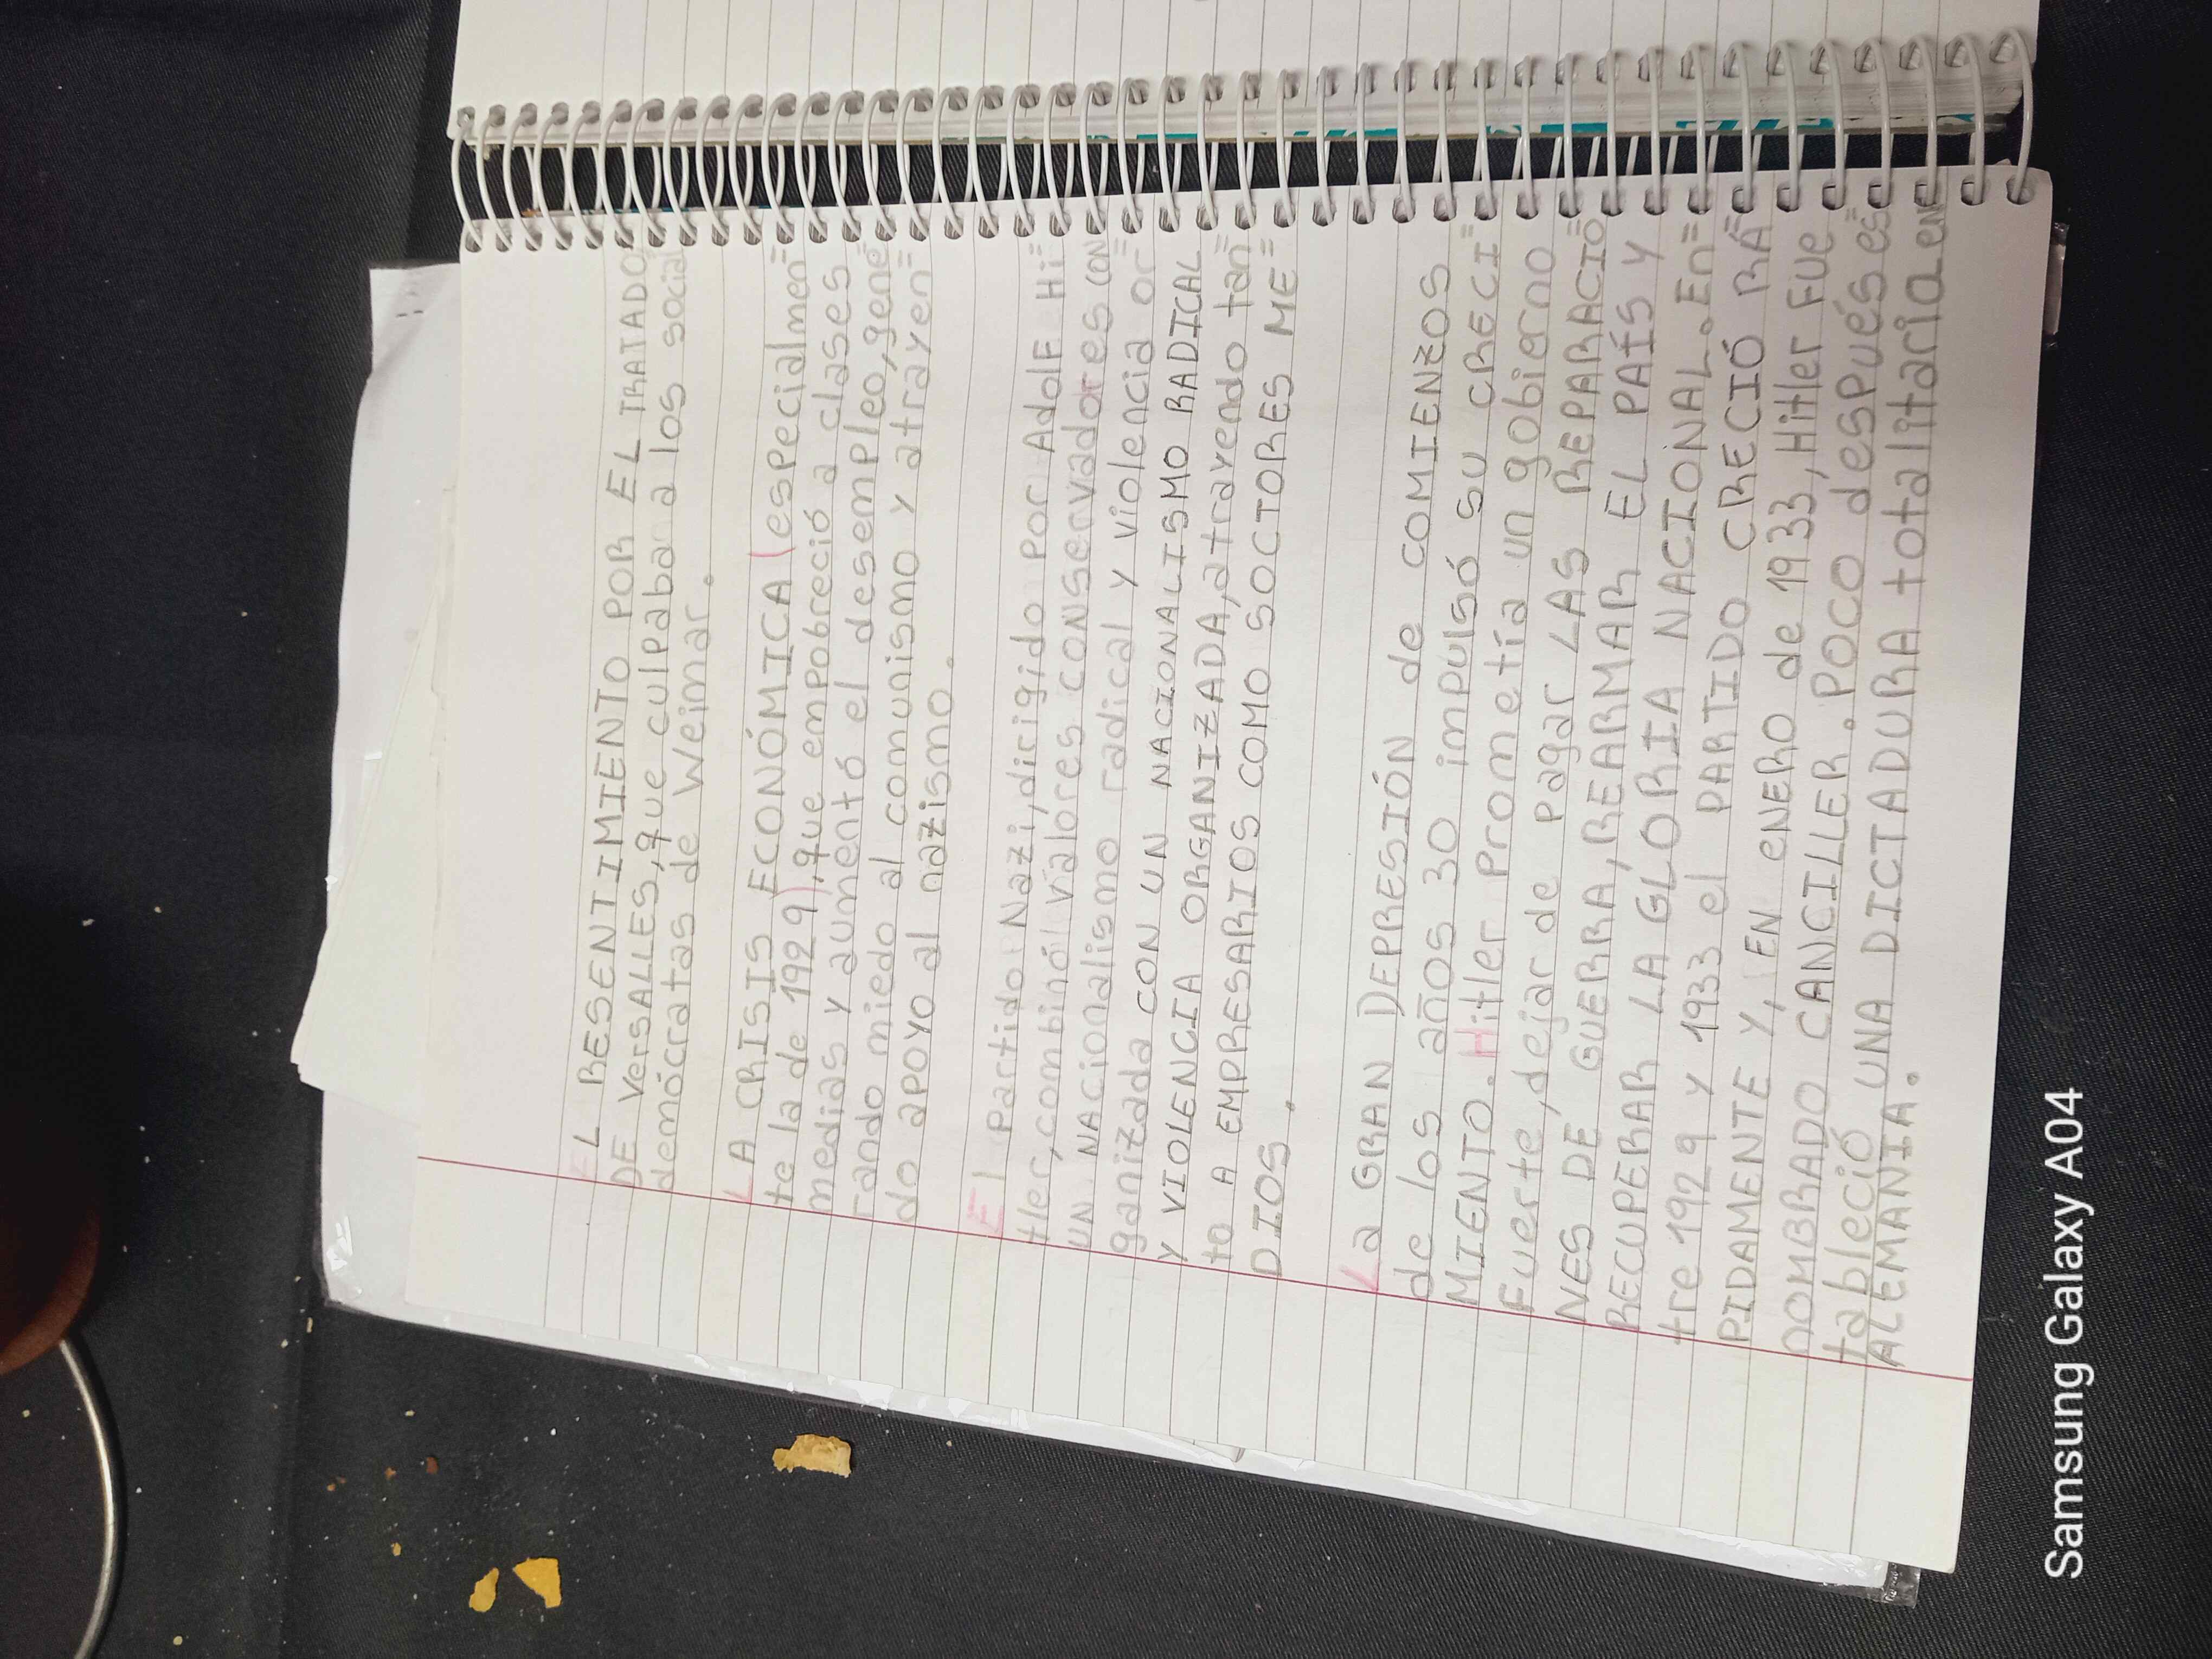 EL RESENTIMIENTO POR EL TRATADO
DE VersALLES, que culpaba a los social
demócratas de Weimar.
LA CRISIS ECONÓMICA (especialmen=
te la de 1929), que empobreció a clases
medias y aumentó el desempleo, gene=
rando miedo al comunismo y atrayen=
do apoyo al nazismo.
El Partido Nazi, dirigido por AdolF Hi=
tler, combinó valores conservadores CON
UN NACIONALISMO radical y violencia or=
ganizada CON UN NACIONALISMO RADICAL
Y VIOLENCIA ORGANIZADA, atrayendo tan=
to A EMPRESARIOS COMO SOCTORES ME=
DIOS.
La GRAN DEPRESIÓN de COMIENZOS
de los años 30 impulsó su CRECI=
MIENTO. Hitler Prometía un gobierno
Fuerte, dejar de Pagar LAS REPARACIO=
NES DE GUERRA, REARMAR EL PAÍS Y
RECUPERAR LA GLORIA NACIONAL. En=
tre 1929 y 1933 el PARTIDO CRECIÓ RÁ=
PIDAMENTE Y, EN ENERO de 1933, Hitler Fue
nOMBRADO CANCILLER. POCO después es=
tableció UNA DICTADURA totalitaria en
ALEMANIA.
Samsung Galaxy A04